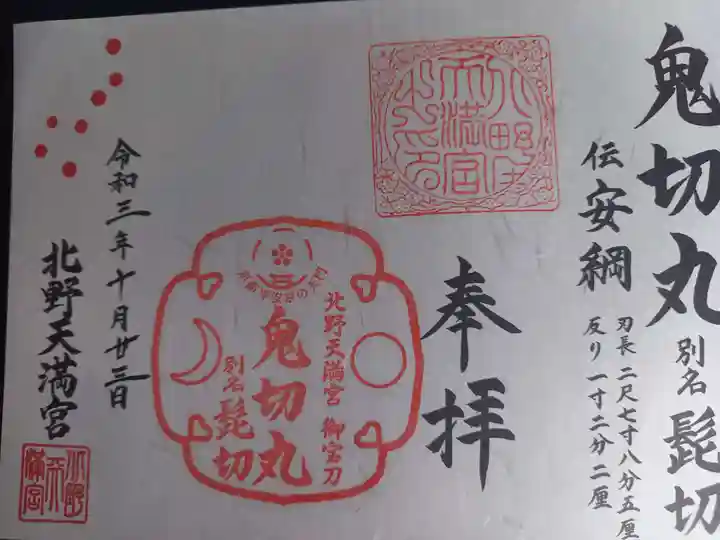 鬼切丸 別名 髭切
伝 安綱
刃長 二尺七寸八分五厘
反り 一寸二分二厘
奉拝
北野天満宮 御宝刀
鬼切丸
別名 髭切
令和三年十月廿三日
北野天満宮